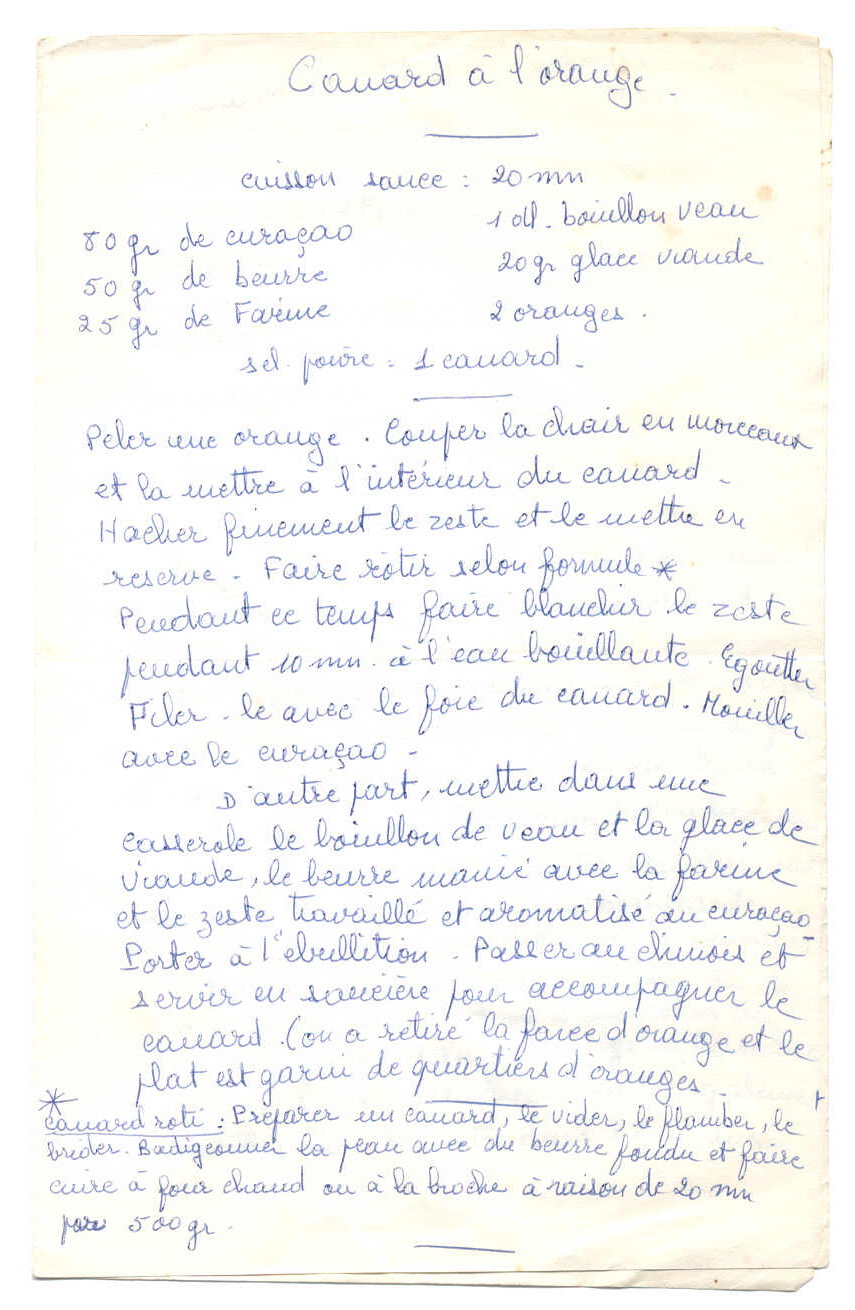 Canard à l'orange -
cuisson sauce : 20 mn
80 gr de curaçao
1 dl. bouillon veau
50 gr de beurre
20 gr glace viande
25 gr de Farine
2 oranges .
sel. poivre : 1 canard -
Peler une orange . Couper la chair en morceaux
et la mettre à l'intérieur du canard -
Hacher finement le zeste et le mettre en
reserve - Faire rôtir selon formule *
Pendant ce temps faire blanchir le zeste
pendant 10 mn. à l'eau bouillante . Egoutter
Piler - le avec le foie du canard . Mouiller
avec le curaçao -
D'autre part, mettre dans une
casserole le bouillon de veau et la glace de
viande, le beurre manié avec la farine
et le zeste travaillé et aromatisé au curaçao -
Porter à l'ebullition . Passer au chinois et
servir en saucière pour accompagner le
canard . (on a retiré la farce d'orange et le
plat est garni de quartiers d'oranges -
*
canard roti : Préparer un canard, le vider, le flamber, le
brider. Badigeonner la peau avec du beurre fondu et faire
cuire à four chaud ou à la broche à raison de 20 mn
par 500 gr .